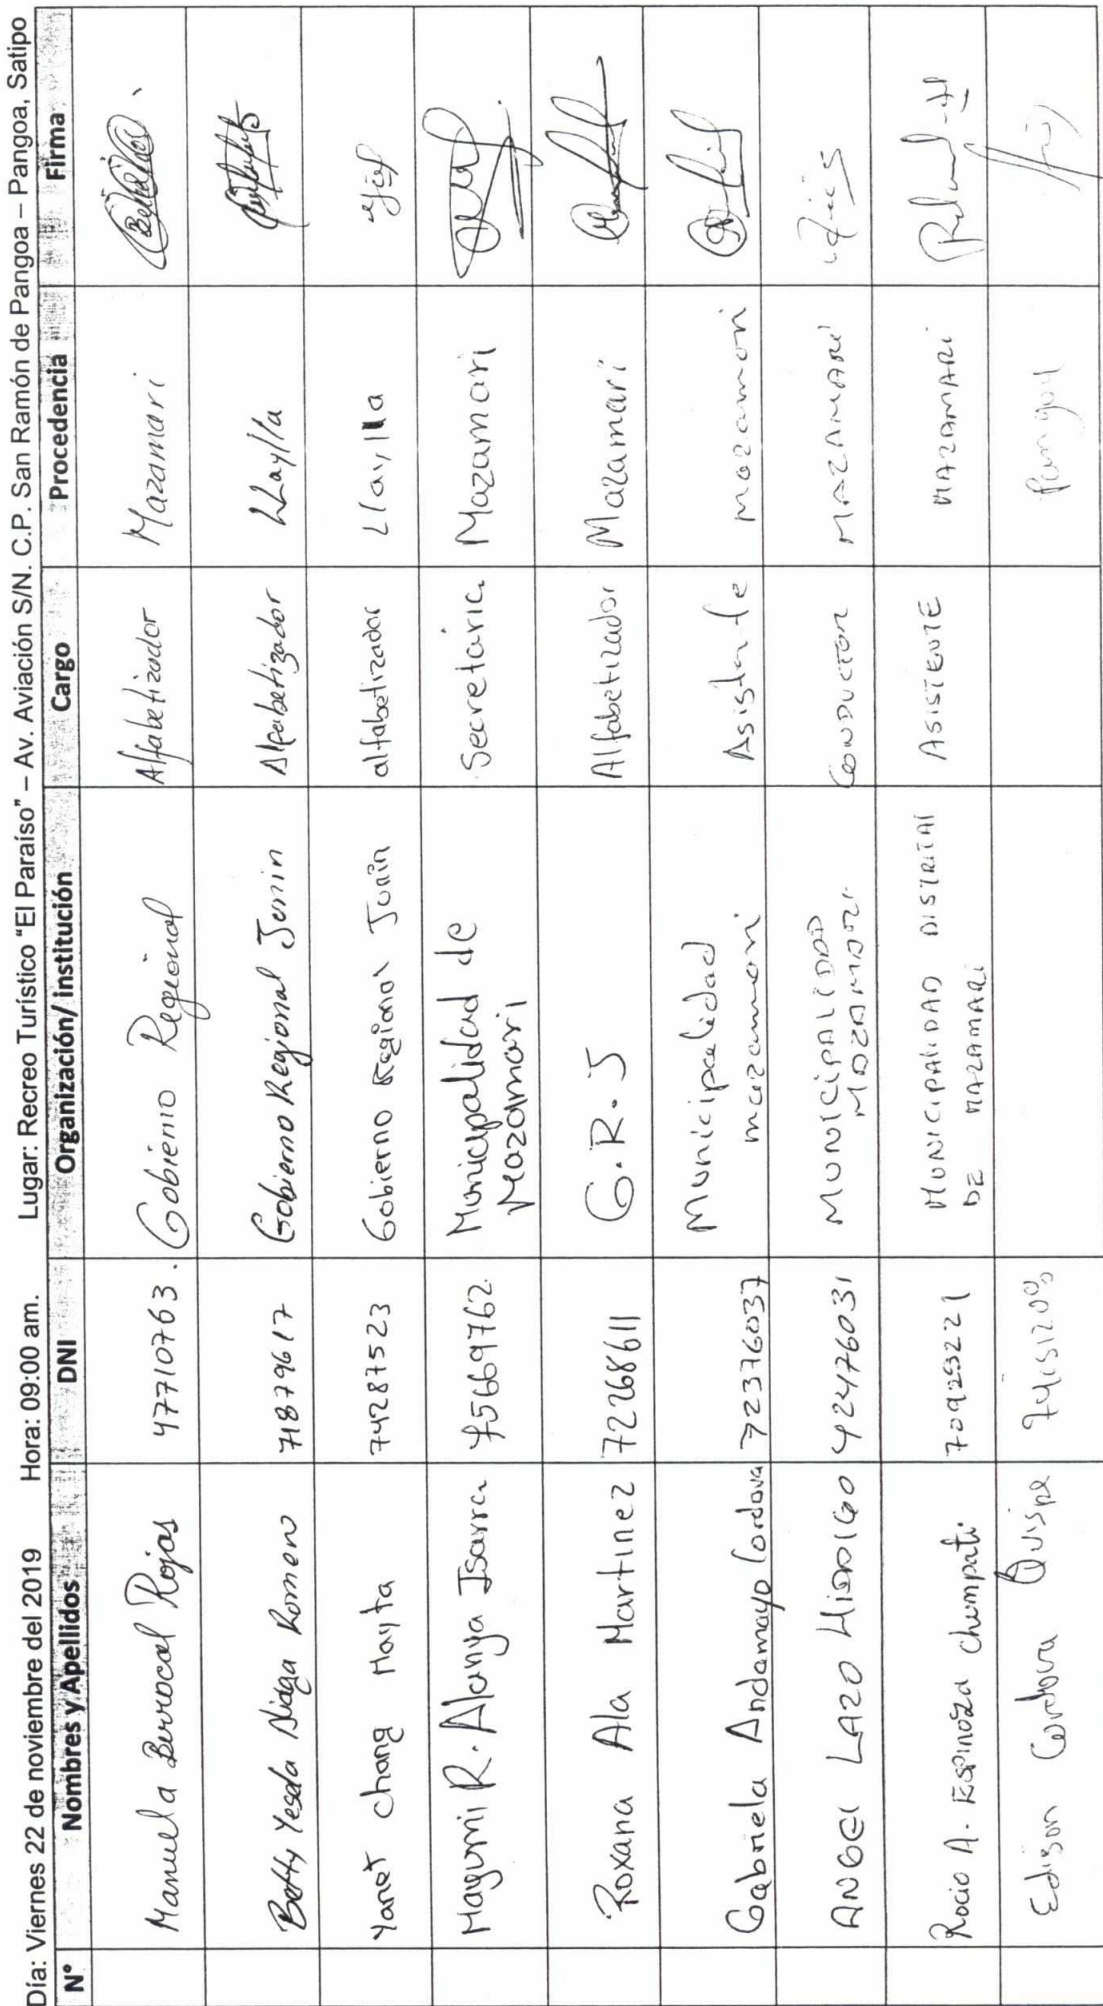 Día: Viernes 22 de noviembre del 2019 Hora: 09:00 am. Lugar: Recreo Turístico "El Paraíso" – Av. Aviación S/N. C.P. San Ramón de Pangoa – Pangoa, Satipo
N° Nombres y Apellidos DNI Organización/ institución Cargo Procedencia Firma
Manuela Berrocal Rojas 47710763. Gobierno Regional Alfabetizador Mazamari
Betty Yesela Aliaga Romero 71879617 Gobierno Regional Junin Alfabetizador LLaylla
Yanet Chang Mayta 74287523 Gobierno Regional Junin alfabetizador Llaylla
Mayumi R. Alanya Isarra 45669762 Municipalidad de Mazamari Secretaria Mazamari
Roxana Ala Martinez 72268611 G.R.J Alfabetizador Mazamari
Gabriela Andamayo Cordova 72376037 Municipalidad mazamari Asistente mazamari
ANGEL LAZO HIDALGO 42476031 MUNICIPALIDAD MAZAMARI CONDUCTOR MAZAMARI
Rocio A. Espinoza Chumpati MUNICIPALIDAD DISTRITAl DE MAZAMARI ASISTENTE MAZAMARI
Edison Cordova Quispe Pangoa